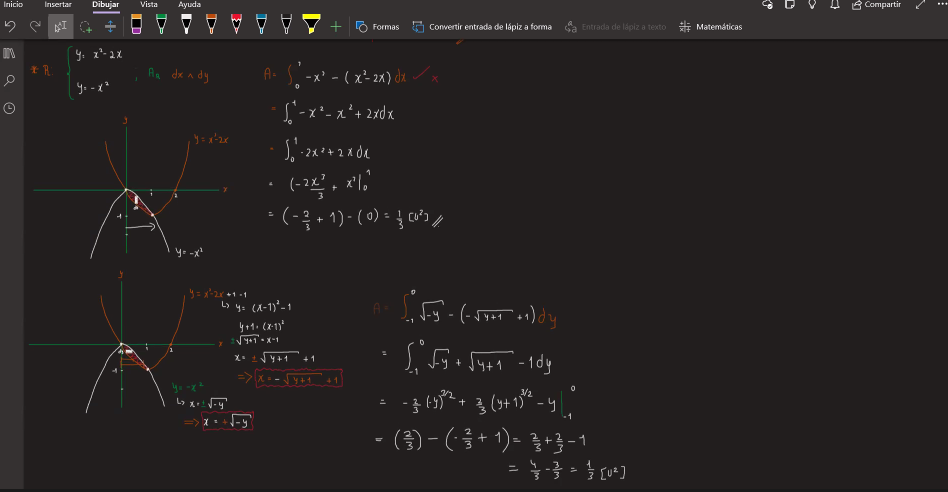 Inicio Insertar Dibujar Vista Ayuda Compartir
Formas Convertir entrada de lápiz a forma Entrada de lápiz a texto Matemáticas
* R { y = x² - 2x
y = -x² , AR dx ∧ dy
A = ∫₀¹ -x² - (x² - 2x) dx ✓ x
= ∫₀¹ -x² - x² + 2x dx
= ∫₀¹ -2x² + 2x dx
= (-2x³/3 + x²|₀¹
= (-2/3 + 1) - (0) = 1/3 [u²] //
y
y = x² - 2x
x
1
2
-1
y = -x²
y
y = x² - 2x + 1 - 1
↳ y = (x-1)² - 1
y + 1 = (x-1)²
±√(y+1) = x - 1
x = ±√(y+1) + 1
⇒ x = -√(y+1) + 1
x
1
2
dy
-1
y = -x²
↳ x = ±√-y
⇒ x = +√-y
A = ∫₋₁⁰ √-y - (-√(y+1) + 1) dy
= ∫₋₁⁰ √-y + √(y+1) - 1 dy
= -2/3 (-y)^3/2 + 2/3 (y+1)^3/2 - y |₋₁⁰
= (2/3) - (-2/3 + 1) = 2/3 + 2/3 - 1
= 4/3 - 3/3 = 1/3 [u²]